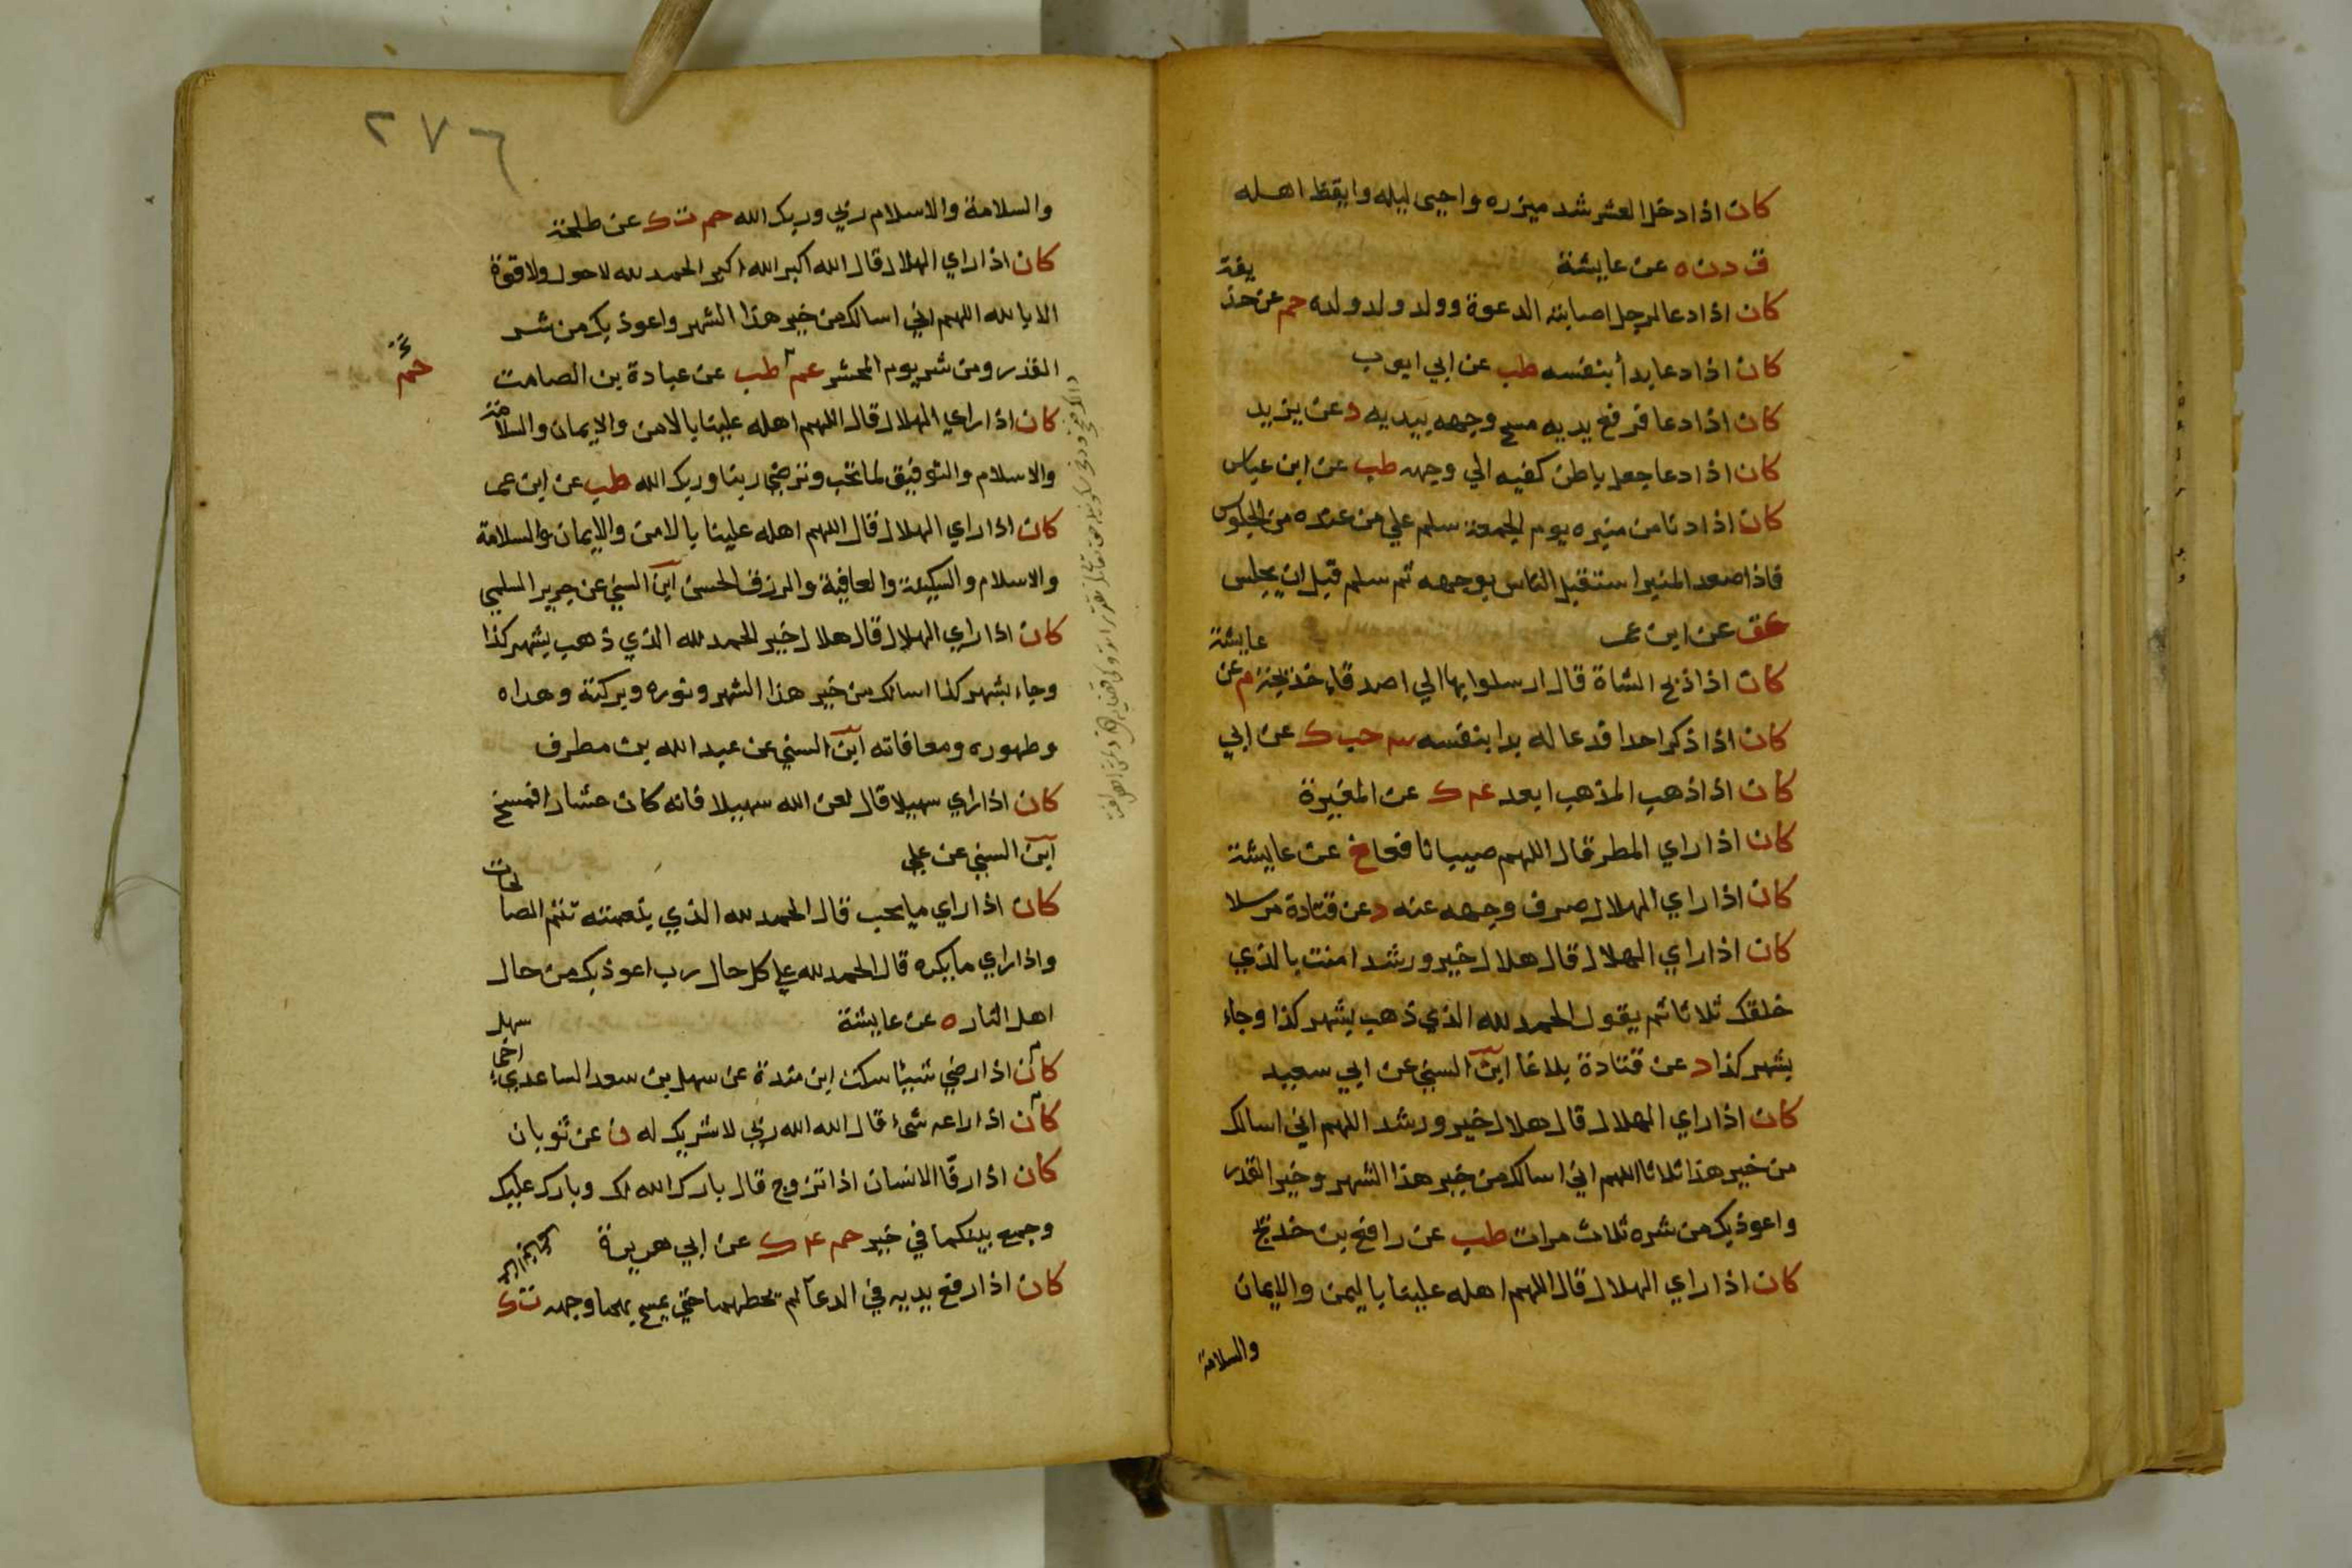 كان اذا دخل العشر شد ميزره واحيى ليله وايقظ اهله
ق د ن ه عن عايشة
كان اذا دعا لرجل اصابته الدعوة وولده وولد ولده حم عن حذيفة
كان اذا دعا بدأ بنفسه طب عن ابي ايوب
كان اذا دعا فرفع يديه مسح وجهه بيديه د عن يزيد
كان اذا دعا جعل باطن كفيه الي وجهه طب عن ابن عباس
كان اذا دنا من منبره يوم الجمعة سلم علي من عنده من الجلوس
فاذا صعد المنبر استقبل الناس بوجهه ثم سلم قبل ان يجلس
عق عن ابن عمر
كان اذا ذبح الشاة قال ارسلوا بها الي اصدقاء خديجة م عن عايشة
كان اذا ذكر احدا فدعا له بدا بنفسه حب ك عن ابي
كان اذا ذهب المذهب ابعد عه ك عن المغيرة
كان اذا راي المطر قال اللهم صيبا نافعا خ عن عايشة
كان اذا راي الهلال صرف وجهه عنه د عن قتادة مرسلا
كان اذا راي الهلال قال هلال خير ورشد امنت بالذي
خلقك ثلاثا ثم يقول الحمد لله الذي ذهب بشهر كذا وجاء
بشهر كذا د عن قتادة بلاغا ابن السني عن ابي سعيد
كان اذا راي الهلال قال هلال خير ورشد اللهم اني اسالك
من خير هذا ثلاثا اللهم اني اسالك من خير هذا الشهر وخير القدر
واعوذ بك من شره ثلاث مرات طب عن رافع بن خديج
كان اذا راي الهلال قال اللهم اهله علينا باليمن والايمان
والسلامة
٢٧٦
والسلامة والاسلام ربي وربك الله حم ت ك عن طلحة
كان اذا راي الهلال قال الله اكبر الله اكبر الحمد لله لا حول ولا قوة
الا بالله اللهم اني اسالك من خير هذا الشهر واعوذ بك من شر
القدر ومن شر يوم المحشر عم طب عن عبادة بن الصامت
حم
كان اذا راي الهلال قال اللهم اهله علينا بالامن والايمان والسلامة
والاسلام والتوفيق لما تحب وترضي ربنا وربك الله طب عن ابن عمر
كان اذا راي الهلال قال اللهم اهله علينا بالامن والايمان والسلامة
والاسلام والسكينة والعافية والرزق الحسن ابن السني عن حرير السلمي
كان اذا راي الهلال قال هلال خير الحمد لله الذي ذهب بشهر كذا
وجاء بشهر كذا اسالك من خير هذا الشهر ونوره وبركته وهداه
وطهوره ومعافاته ابن السني عن عبد الله بن مطرف
كان اذا راي سهيلا قال لعن الله سهيلا فانه كان عشارا فمسخ
ابن السني عن علي
كان اذا راي ما يحب قال الحمد لله الذي بنعمته تتم الصالحات
واذا راي ما يكره قال الحمد لله علي كل حال رب اعوذ بك من حال
اهل النار ه عن عايشة
كان اذا رضي شيئا سكت ابن مندة عن سهل بن سعد الساعدي اخي سهل
كان اذا راعه شئ قال الله الله ربي لا شريك له ن عن ثوبان
كان اذا رقا الانسان اذا تزوج قال بارك الله لك وبارك عليك
وجمع بينكما في خير حم عه ك عن ابي هريرة
كان اذا رفع يديه في الدعا لم يحطهما حتي يمسح بهما وجهه ت ك